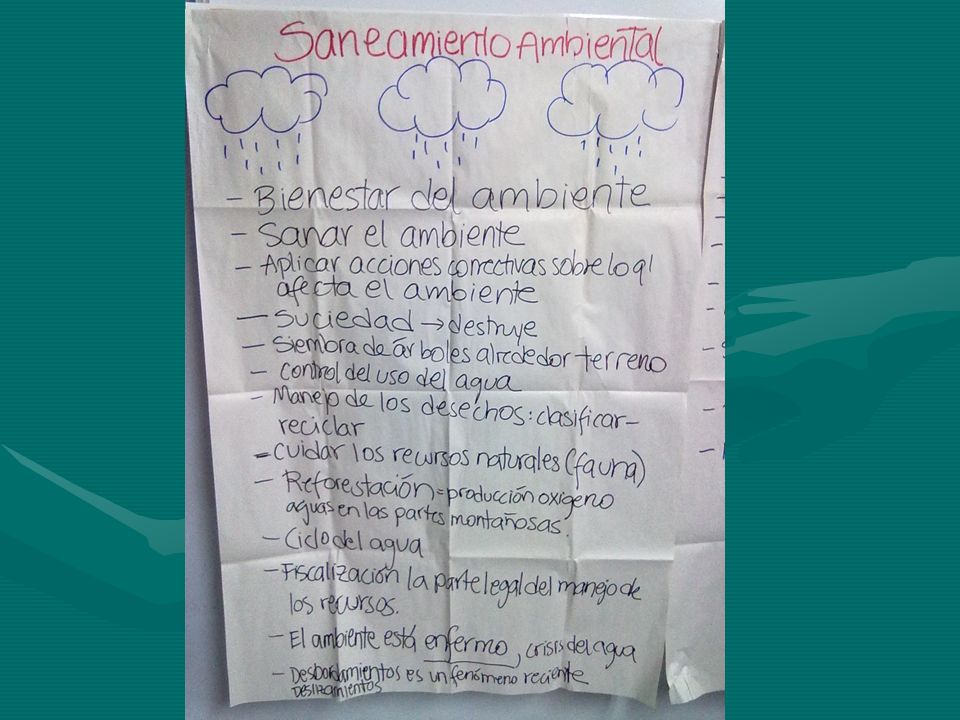 Saneamiento Ambiental
- Bienestar del ambiente
- Sanar el ambiente
- Aplicar acciones correctivas sobre lo q'
afecta el ambiente
- Suciedad → destruye
- Siembra de árboles alrededor terreno
- Control del uso del agua
- Manejo de los desechos: clasificar-
reciclar
- cuidar los recursos naturales (fauna)
- Reforestación = producción oxigeno
aguas en las partes montañosas.
- Ciclo del agua
- Fiscalización la parte legal del manejo de
los recursos.
- El ambiente está enfermo, crisis del agua
- Desbordamientos es un fenómeno reciente
Deslizamientos